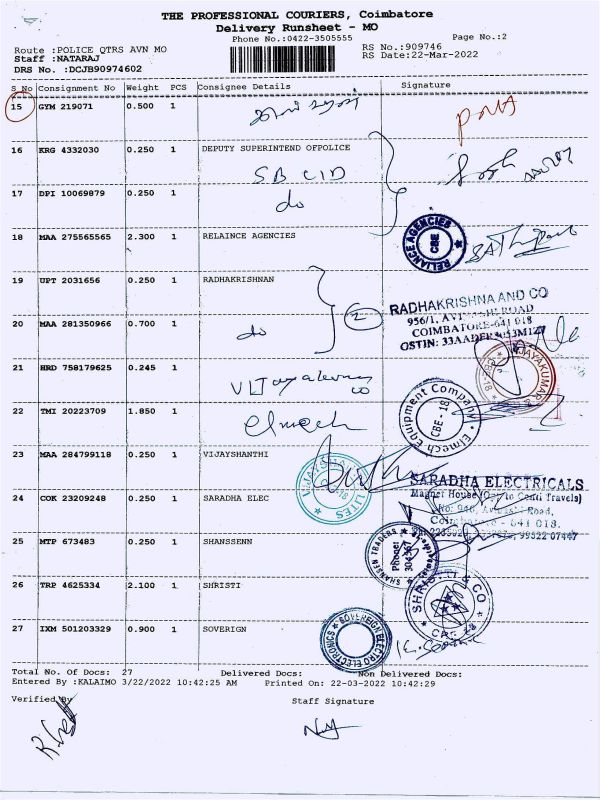 THE PROFESSIONAL COURIERS, Coimbatore
Delivery Runsheet - MO
Phone No.:0422-3505555
Page No.:2
Route :POLICE QTRS AVN MO
RS No.:909746
Staff :NATARAJ
RS Date:22-Mar-2022
DRS No. :DCJB90974602
S No Consignment No Weight PCS Consignee Details Signature
15 GYM 219071 0.500 1
16 KRG 4332030 0.250 1 DEPUTY SUPERINTEND OFPOLICE
SB CID
17 DPI 10069879 0.250 1 do
18 MAA 275565565 2.300 1 RELAINCE AGENCIES
RELIANCE AGENCIES CBE
19 UPT 2031656 0.250 1 RADHAKRISHNAN
2
RADHAKRISHNA AND CO
956/1, ROAD
COIMBATORE-641 018
20 MAA 281350966 0.700 1 do
21 HRD 758179625 0.245 1
VIJAYAKUMAR &
22 TMI 20223709 1.850 1 elmech
Elmech Equipment Company CBE - 18
23 MAA 284799118 0.250 1 VIJAYSHANTHI
SARADHA ELECTRICALS
Magnet House (Opp to Centl Travels)
24 COK 23209248 0.250 1 SARADHA ELEC
No: 940, Road,
Coimbatore - 641 018.
99522 07447
25 MTP 673483 0.250 1 SHANSSENN
SHANSEN TRADERS Phone:
26 TRP 4625334 2.100 1 SHRISTI
27 IXM 501203329 0.900 1 SOVERIGN
SOVEREIGN ELECTRO ELECTRONICS
Total No. Of Docs: 27 Delivered Docs: Non Delivered Docs:
Entered By :KALAIMO 3/22/2022 10:42:25 AM Printed On: 22-03-2022 10:42:29
Verified By
Staff Signature